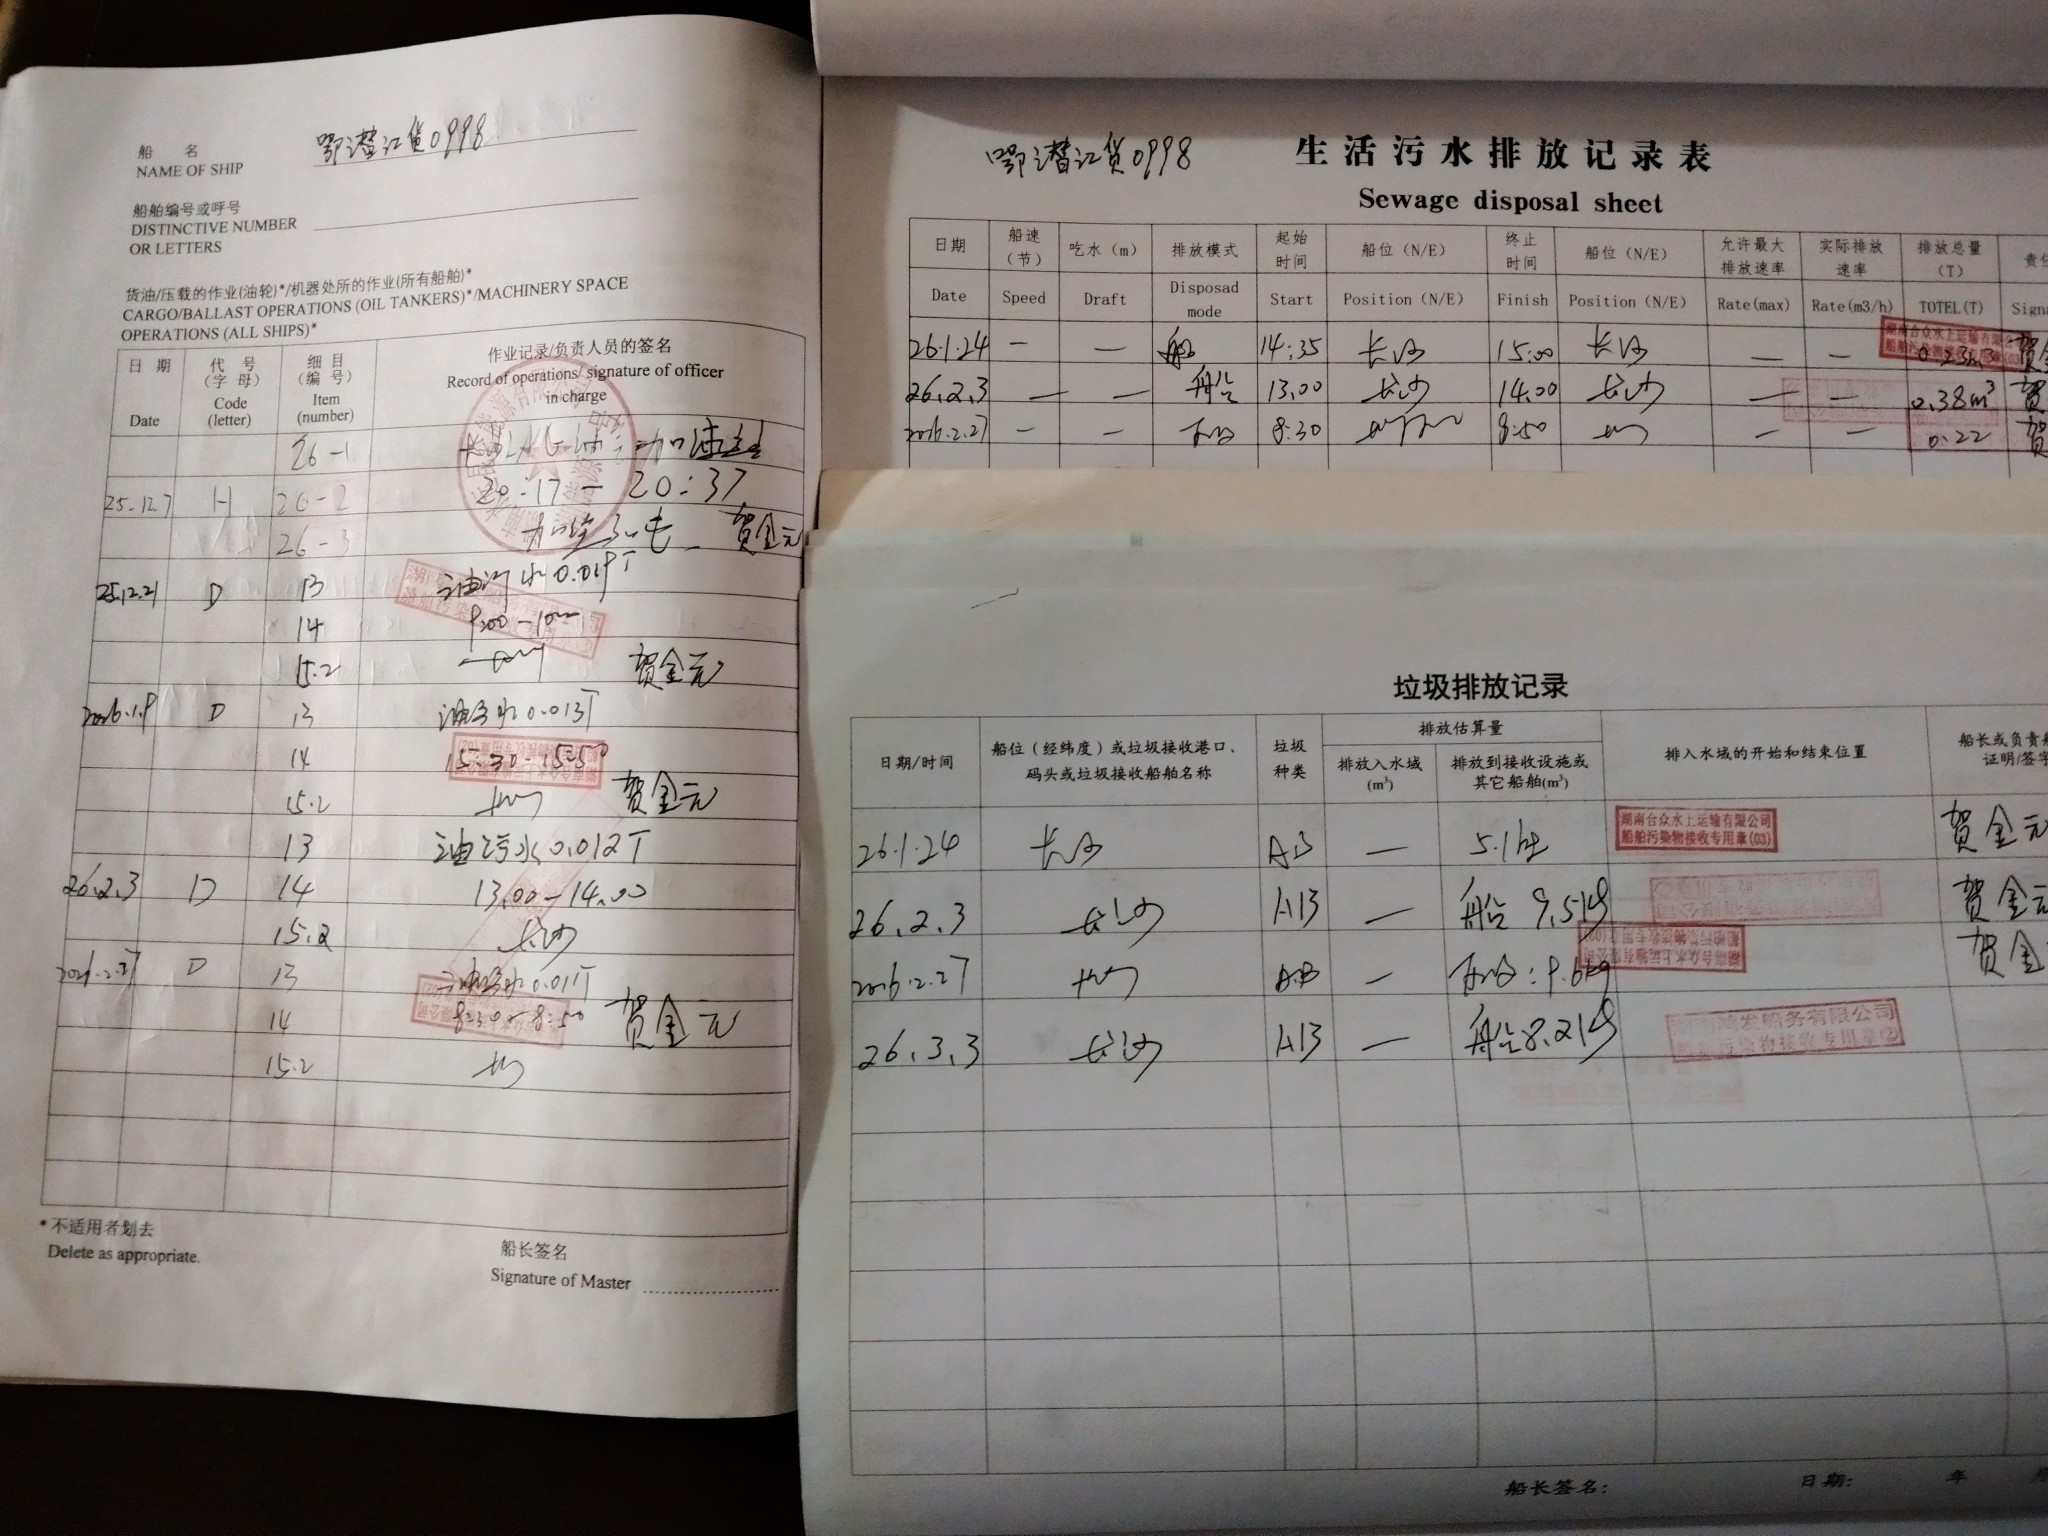 船 名
NAME OF SHIP
鄂潜江货0998
船舶编号或呼号
DISTINCTIVE NUMBER
OR LETTERS
货油/压载的作业(油轮)*/机器处所的作业(所有船舶)*
CARGO/BALLAST OPERATIONS (OIL TANKERS)*/MACHINERY SPACE
OPERATIONS (ALL SHIPS)*
日 期 代 号 细 目 作业记录/负责人员的签名
(字 母) (编 号) Record of operations/ signature of officer
Date Code Item in charge
(letter) (number)
26-1
25.12.7 H 26-2 20:17-20:37
26-3 贺金元
25.12.21 D 13 油污水0.019T
14
15.2 贺金元
2026.1.9 D 13 油污水0.013T
14 15:30-15:50
15.2 长沙 贺金元
13 油污水0.012T
26.2.3 D 14 13.00-14.00
15.2 长沙
2026.2.27 D 13 油污水0.011T
14 8:30-8:50 贺金元
15.2 长沙
*不适用者划去
Delete as appropriate.
船长签名
Signature of Master
鄂潜江货0998 生活污水排放记录表
Sewage disposal sheet
日期 船速(节) 吃水(m) 排放模式 起始时间 船位(N/E) 终止时间 船位(N/E) 允许最大排放速率 实际排放速率 排放总量(T)
Date Speed Draft Disposad mode Start Position (N/E) Finish Position (N/E) Rate(max) Rate(m3/h) TOTEL(T)
26.1.24 — — 船 14:35 长沙 15:00 长沙 — — 0.23m³ 贺
26.2.3 — — 船 13.00 长沙 14.00 长沙 — — 0.38m³ 贺
2026.2.27 — — 8:30 长沙 8:50 长沙 — — 0.22 贺
垃圾排放记录
日期/时间 船位(经纬度)或垃圾接收港口、码头或垃圾接收船舶名称 垃圾种类 排放估算量 排入水域的开始和结束位置
排放入水域(m³) 排放到接收设施或其它船舶(m³)
湖南台众水上运输有限公司
船舶污染物接收专用章(03)
26.1.24 长沙 AB — 5.1kg 贺金元
26.2.3 长沙 AB — 船 9.5kg 贺金元
2026.2.27 长沙 AB — 9.6kg 贺金
26.3.3 长沙 AB — 船 8.2kg
船长签名: 日期: 年